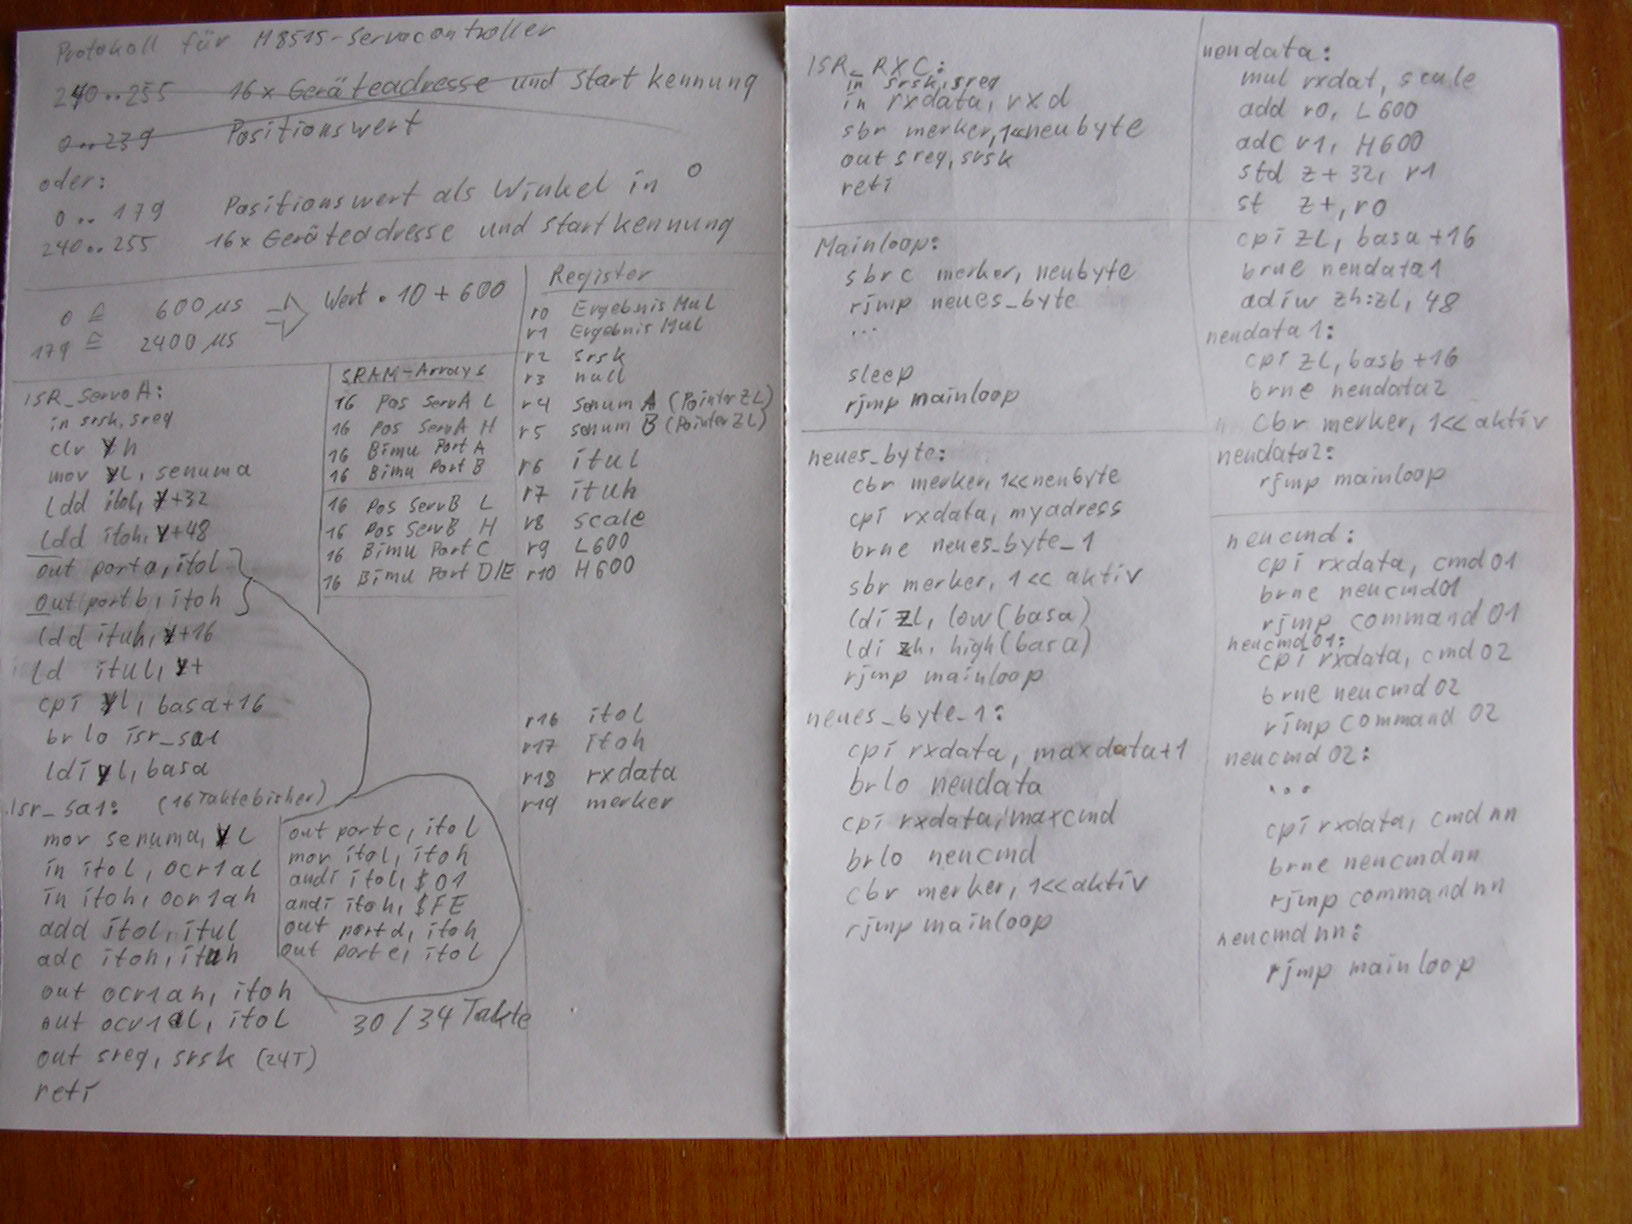 Protokoll für M8515-Servocontroller
240..255 16x Geräteadresse und Startkennung
0..239 Positionswert
oder:
0..179 Positionswert als Winkel in °
240..255 16x Geräteadresse und Startkennung
0 ≙ 600 µs
179 ≙ 2400 µs
⇒ Wert • 10 + 600
ISR_ServoA:
in srsk, sreg
clr Yh
mov YL, senuma
ldd itol, Y+32
ldd itoh, Y+48
out porta, itol
out portb, itoh
ldd ituh, Y+16
ld itul, Y+
cpi YL, basa+16
brlo isr_sa1
ldi YL, basa
isr_sa1: (16 Takte bisher)
mov senuma, YL
in itol, ocr1al
in itoh, ocr1ah
add itol, itul
adc itoh, ituh
out ocr1ah, itoh
out ocr1al, itol
out sreg, srsk (24T)
reti
out portc, itol
mov itol, itoh
andi itol, $01
andi itoh, $FE
out portd, itoh
out porte, itol
30/34 Takte
SRAM-Arrays
16 Pos ServA L
16 Pos ServA H
16 Bimu Port A
16 Bimu Port B
16 Pos ServB L
16 Pos ServB H
16 Bimu Port C
16 Bimu Port D/E
Register
r0 Ergebnis Mul
r1 Ergebnis Mul
r2 srsk
r3 null
r4 senum A (Pointer ZL)
r5 senum B (Pointer ZL)
r6 itul
r7 ituh
r8 scale
r9 L600
r10 H600
r16 itol
r17 itoh
r18 rxdata
r19 merker
ISR_RXC:
in srsk, sreg
in rxdata, rxd
sbr merker, 1<<neubyte
out sreg, srsk
reti
Mainloop:
sbrc merker, neubyte
rjmp neues_byte
...
sleep
rjmp mainloop
neues_byte:
cbr merker, 1<<neubyte
cpi rxdata, myadress
brne neues_byte_1
sbr merker, 1<< aktiv
ldi ZL, low(basa)
ldi zh, high(basa)
rjmp mainloop
neues_byte_1:
cpi rxdata, maxdata+1
brlo neudata
cpi rxdata, maxcmd
brlo neucmd
cbr merker, 1<<aktiv
rjmp mainloop
neudata:
mul rxdat, scale
add r0, L600
adc r1, H600
std z+32, r1
st z+, r0
cpi ZL, basa+16
brne neudata1
adiw zh:zl, 48
neudata1:
cpi ZL, basb+16
brne neudata2
cbr merker, 1<< aktiv
neudata2:
rjmp mainloop
neucmd:
cpi rxdata, cmd01
brne neucmd01
rjmp command01
neucmd01:
cpi rxdata, cmd02
brne neucmd02
rjmp command 02
neucmd02:
...
cpi rxdata, cmd nn
brne neucmdnn
rjmp command nn
neucmdnn:
rjmp mainloop